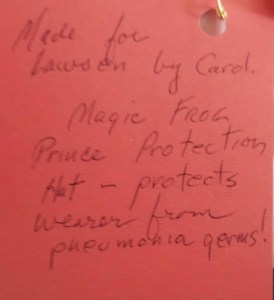 Made for
Lawson by Carol.
Magic Frog
Prince Protection
Hat - protects
wearer from
pneumonia germs!